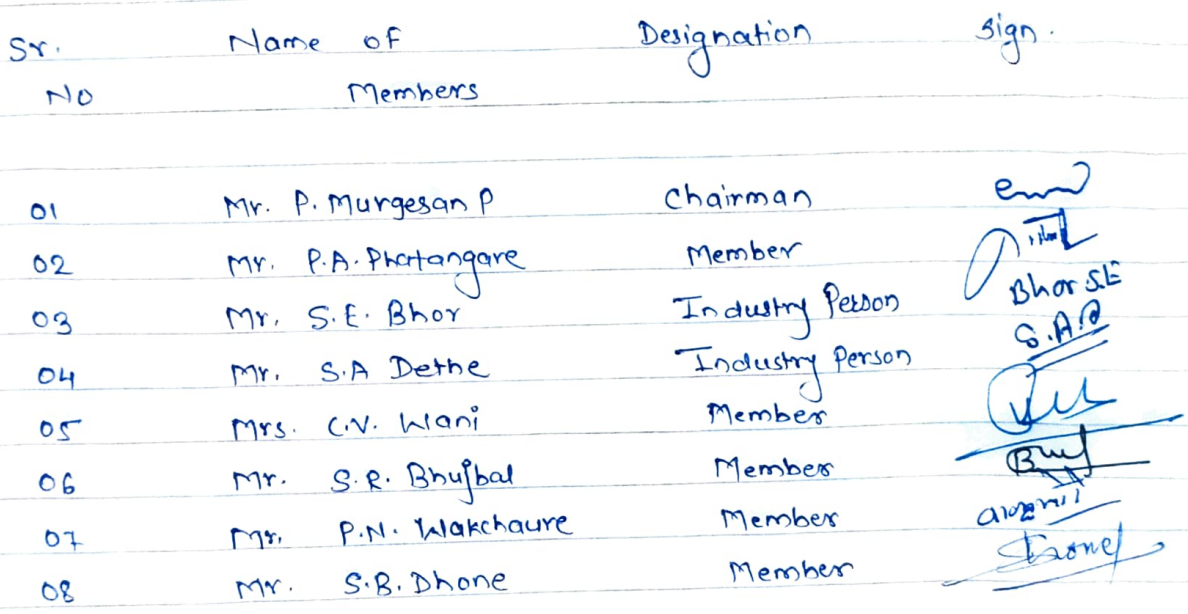 Sr. Name of Designation Sign.
No Members
01 Mr. P. Murgesan P Chairman
02 Mr. P.A. Phatangare Member
03 Mr. S.E. Bhor Industry Person Bhor S.E
04 Mr. S.A Dethe Industry Person S.A.D
05 Mrs. C.V. Wani Member
06 Mr. S.R. Bhujbal Member
07 Mr. P.N. Wakchaure Member
08 Mr. S.B. Dhone Member